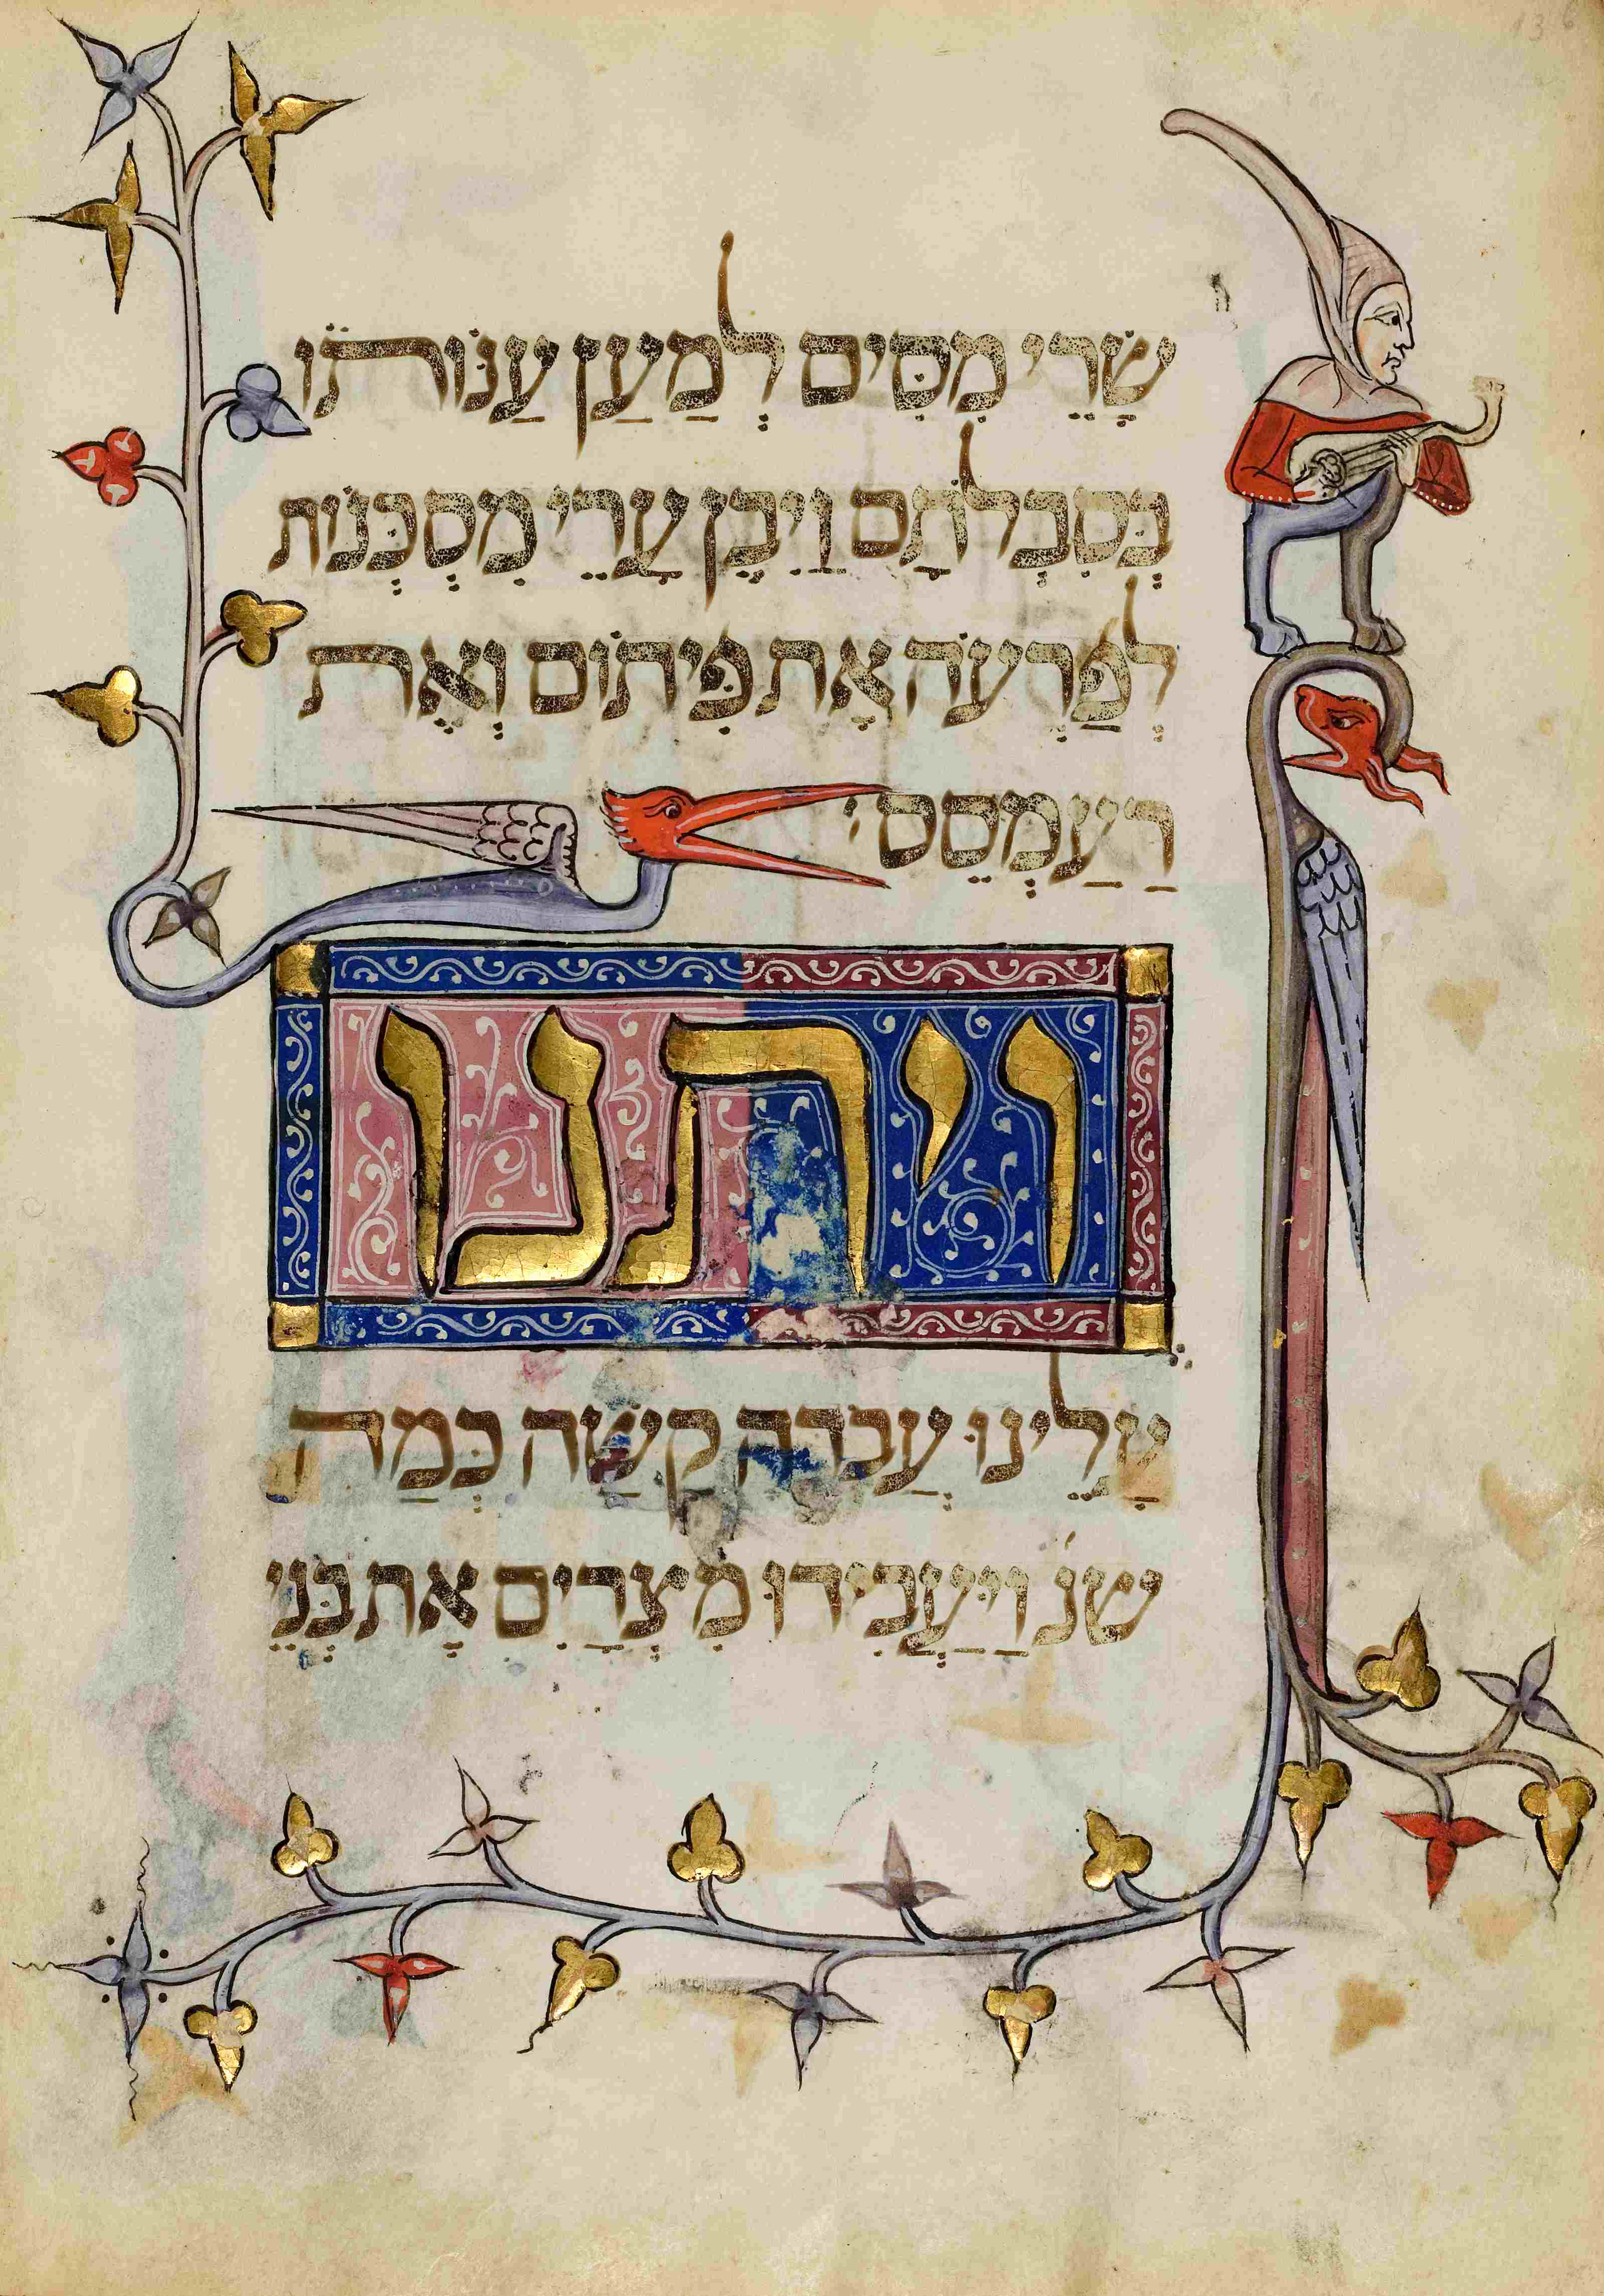 שָׂרֵי מִסִּים לְמַעַן עַנּוֹתוֹ
בְּסִבְלֹתָם וַיִּבֶן עָרֵי מִסְכְּנוֹת
לְפַרְעֹה אֶת פִּיתוֹם וְאֶת
רַעַמְסֵס׳
ויתנו
עָלֵינוּ עֲבֹדָה קָשָׁה כְּמַה
שנ׳ וַיַּעֲבִידוּ מִצְרַיִם אֶת בְּנֵי